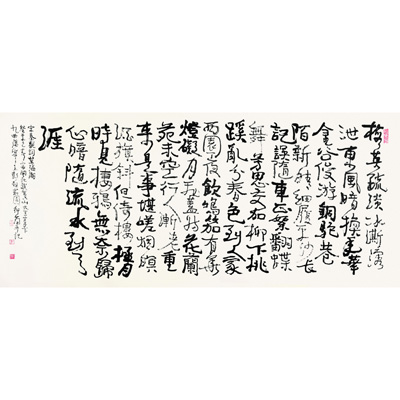 梅英疏淡冰澌溶
泄東風暗換年華
金谷俊游銅駝巷
陌新晴細履平沙長
記誤隨車正絮翻蝶
舞芳思交加柳下桃
蹊亂分春色到人家
西園夜飲鳴笳有華
燈礙月飛蓋妨花蘭
苑未空行人漸老重
來是事堪嗟煙暝
酒旗斜但倚樓極目
時見棲鴉無奈歸
心暗隨流水到天
涯
宋秦觀詞望海潮